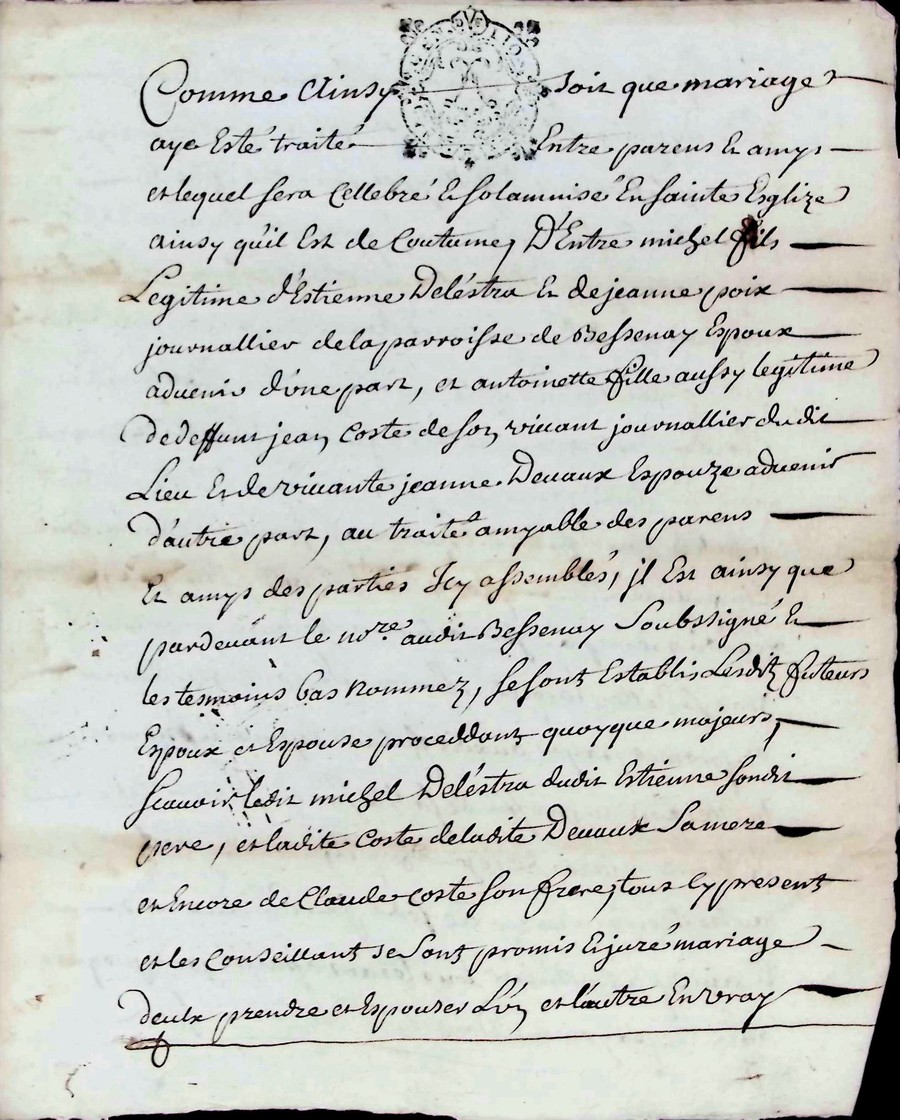 Comme Ainsy soit que mariage
aye Esté traité Entre parens Et amys
et lequel sera Cellebré Et solamnisé En sainte Esglize
ainsy qu'il Est de Coutume, D'Entre michel fils
Legitime d'Estienne Deléstra Et de jeanne poix
journallier de la parroisse de Bessenay Espoux
advenir d'une part, et antoinette fille aussy legitime
de deffunt jean Coste de son vivant journallier du dit
Lieu Et de vivante jeanne Devaux Espouze advenir
d'autre part, au traité amyable des parens
Et amys des parties Icy assemblés, jl Est ainsy que
pardevant le nore audit Bessenay Soubssigné Et
les tesmoins bas nommez, se sont Establis Lesditz futeurs
Espoux et Espouse proceddant quoyque majeurs,
scavoir, ledit michel Deléstra dudit Estienne sondit
pere, et ladite Coste de ladite Devaux Sa mere
et Encore de Claude Coste son frere, tous Cy present
et les Conseillant se sont promis Et juré mariage
deulx prendre et Espouser L'un et l'autre En vray